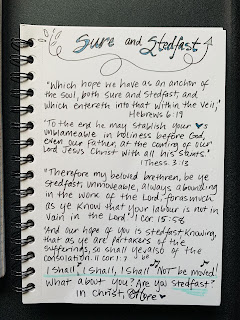 Sure and Stedfast
"Which hope we have as an anchor of
the soul, both sure and stedfast, and
which entereth into that within the veil,"
Hebrews 6:19
"To the end he may stablish your ♥s
unblameable in holiness before God,
even our Father, at the coming of our
Lord Jesus Christ with all his saints."
1 Thess. 3:13
"Therefore my beloved brethren, be ye
stedfast, unmoveable, always abounding
in the work of the Lord, forasmuch
as ye know that your labour is not in
vain in the Lord." 1 Cor. 15:58
And our hope of you is stedfast, knowing,
that as ye are partakers of the
sufferings, so shall ye also of the
consolation. II Cor. 1:7 be
I Shall, I Shall, I Shall Not be moved
What about you? Are you stedfast?
in Christ,